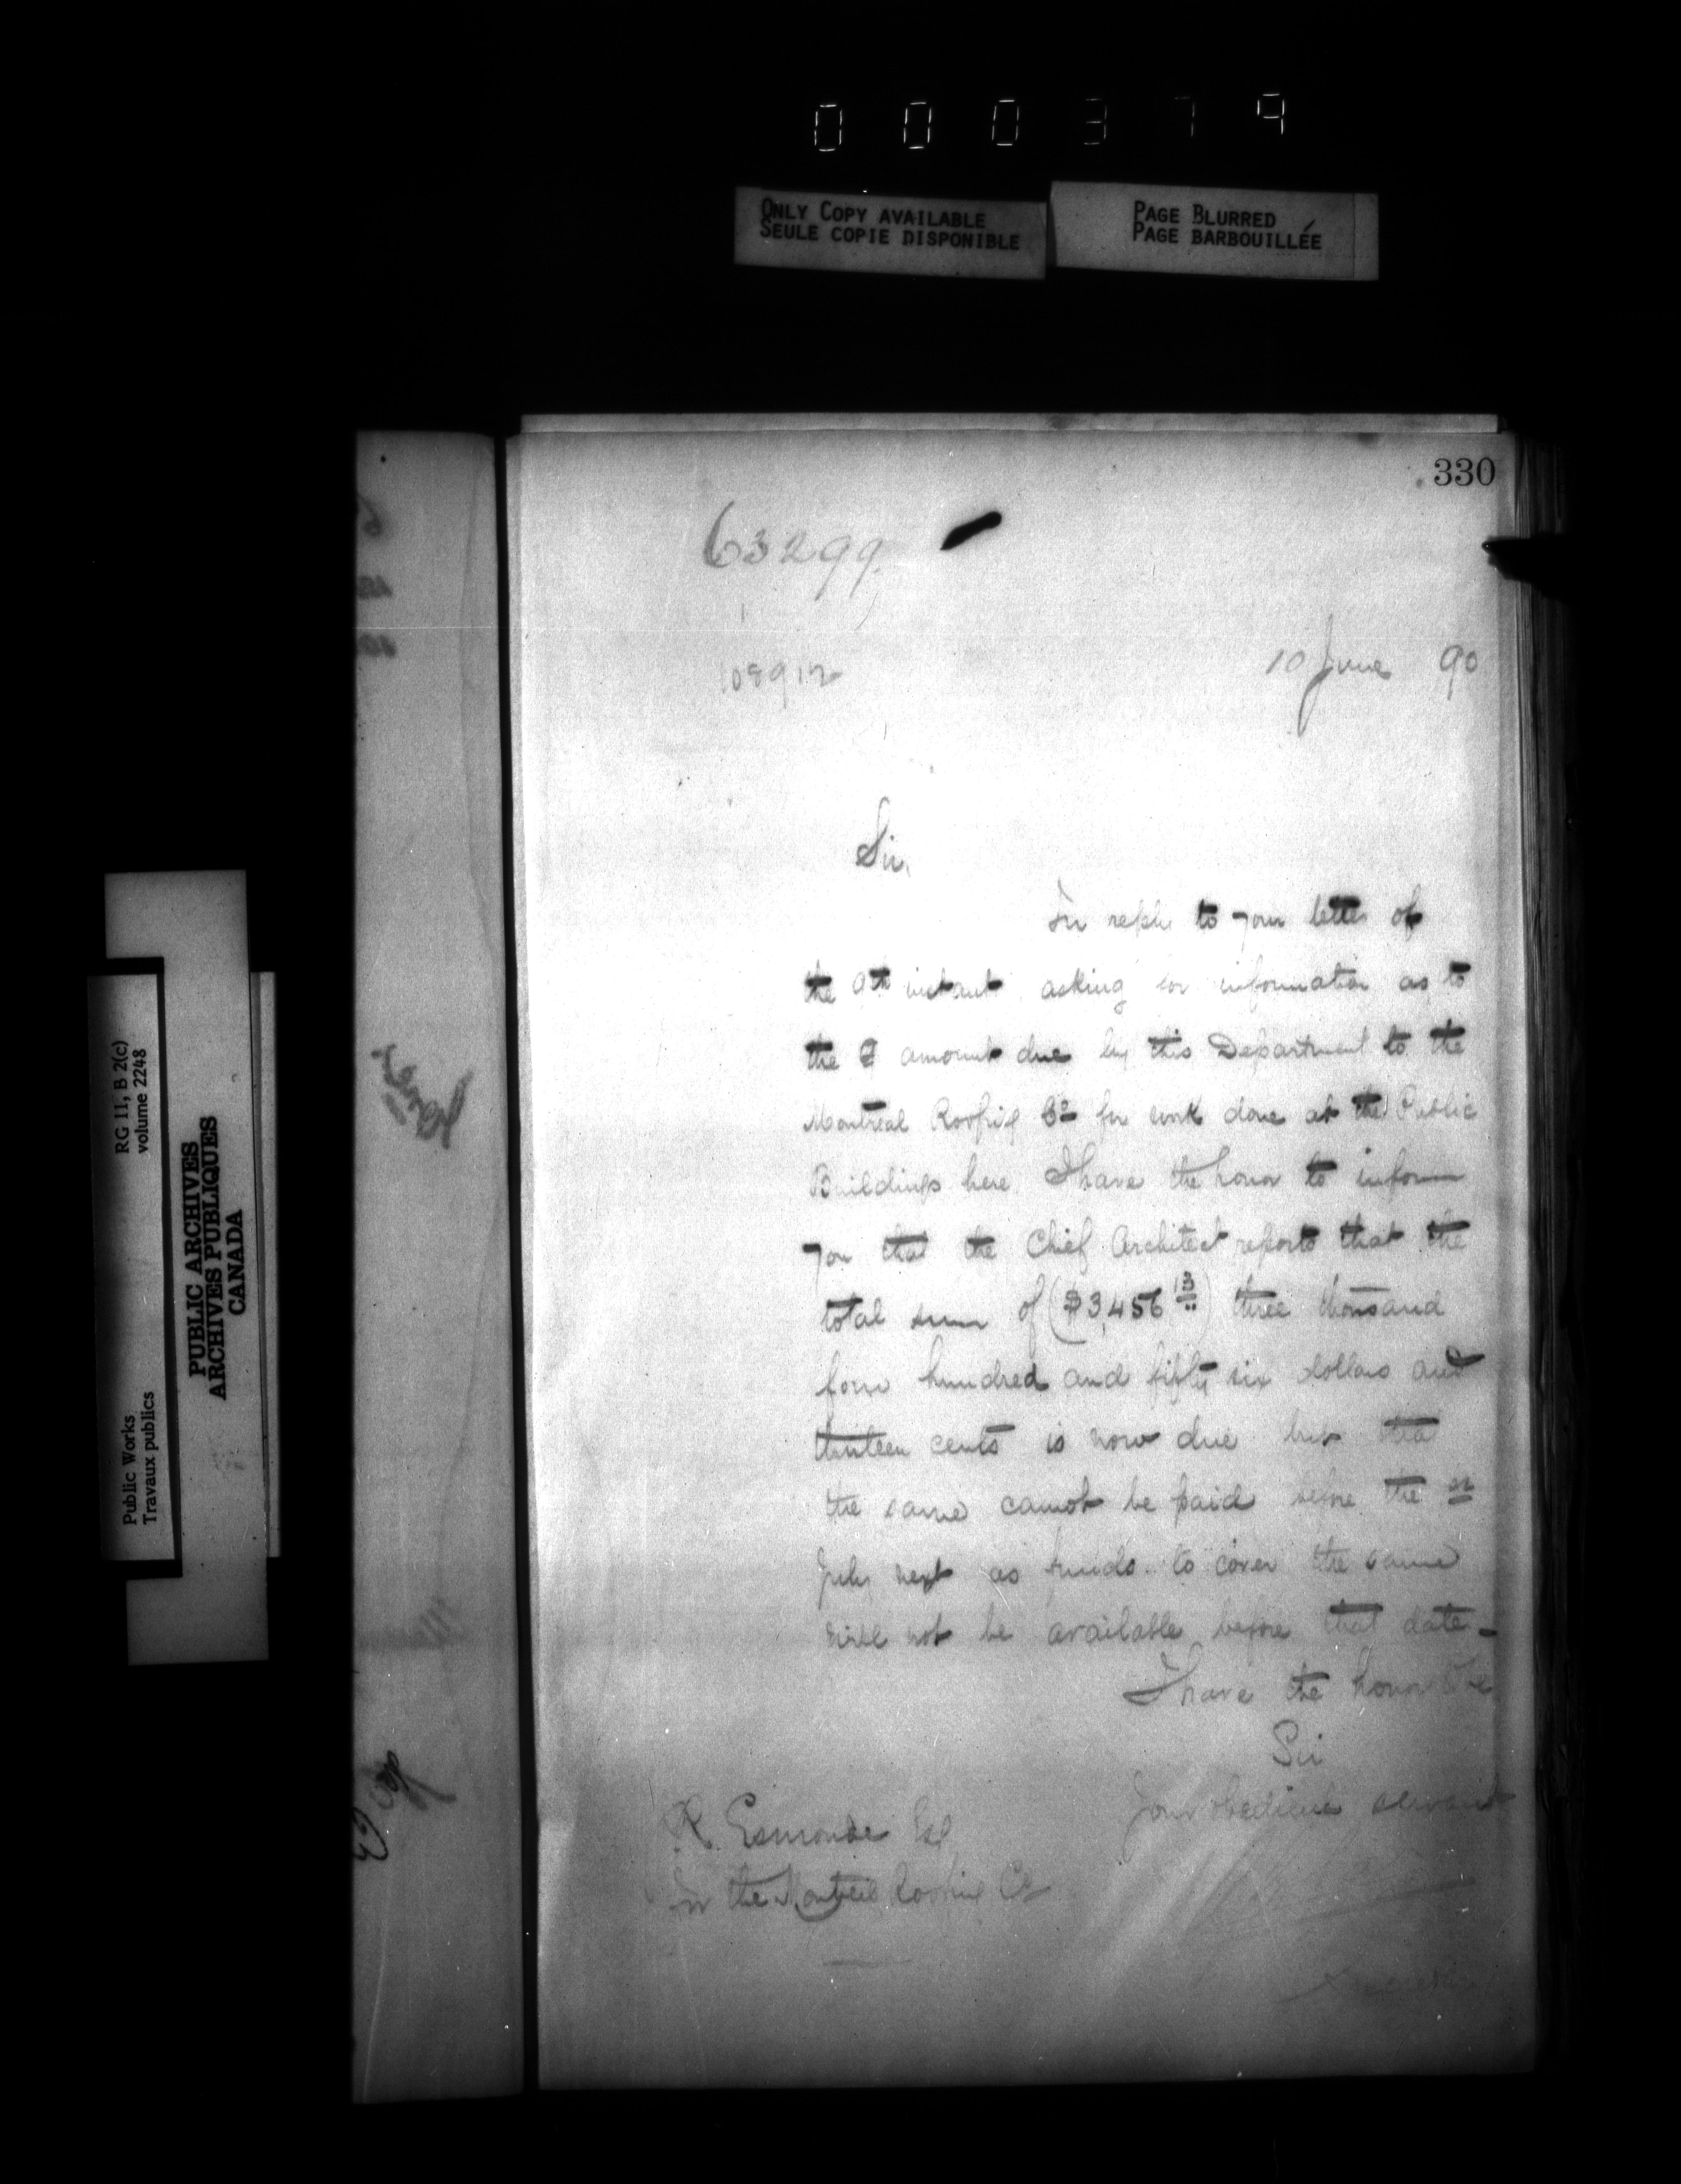 000379
ONLY COPY AVAILABLE
SEULE COPIE DISPONIBLE
PAGE BLURRED
PAGE BARBOUILLÉE
330
63299
108912
10 June 90
Sir,
In reply to your letter of
the 9th instant asking for information as to
the amount due by this Department to the
Montreal Roofing Co for work done at the Public
Buildings here I have the honor to inform
you that the Chief Architect reports that the
total sum of ($3,456 13) three thousand
four hundred and fifty six dollars and
thirteen cents is now due but that
the same cannot be paid before the
July next as funds to cover the same
will not be available before that date -
I have the honor to be
Sir
Your obedient servant
R. Esmonde Esq
for the Montreal Roofing Co
Public Works
Travaux publics
RG 11, B 2(c)
volume 2248
PUBLIC ARCHIVES
ARCHIVES PUBLIQUES
CANADA